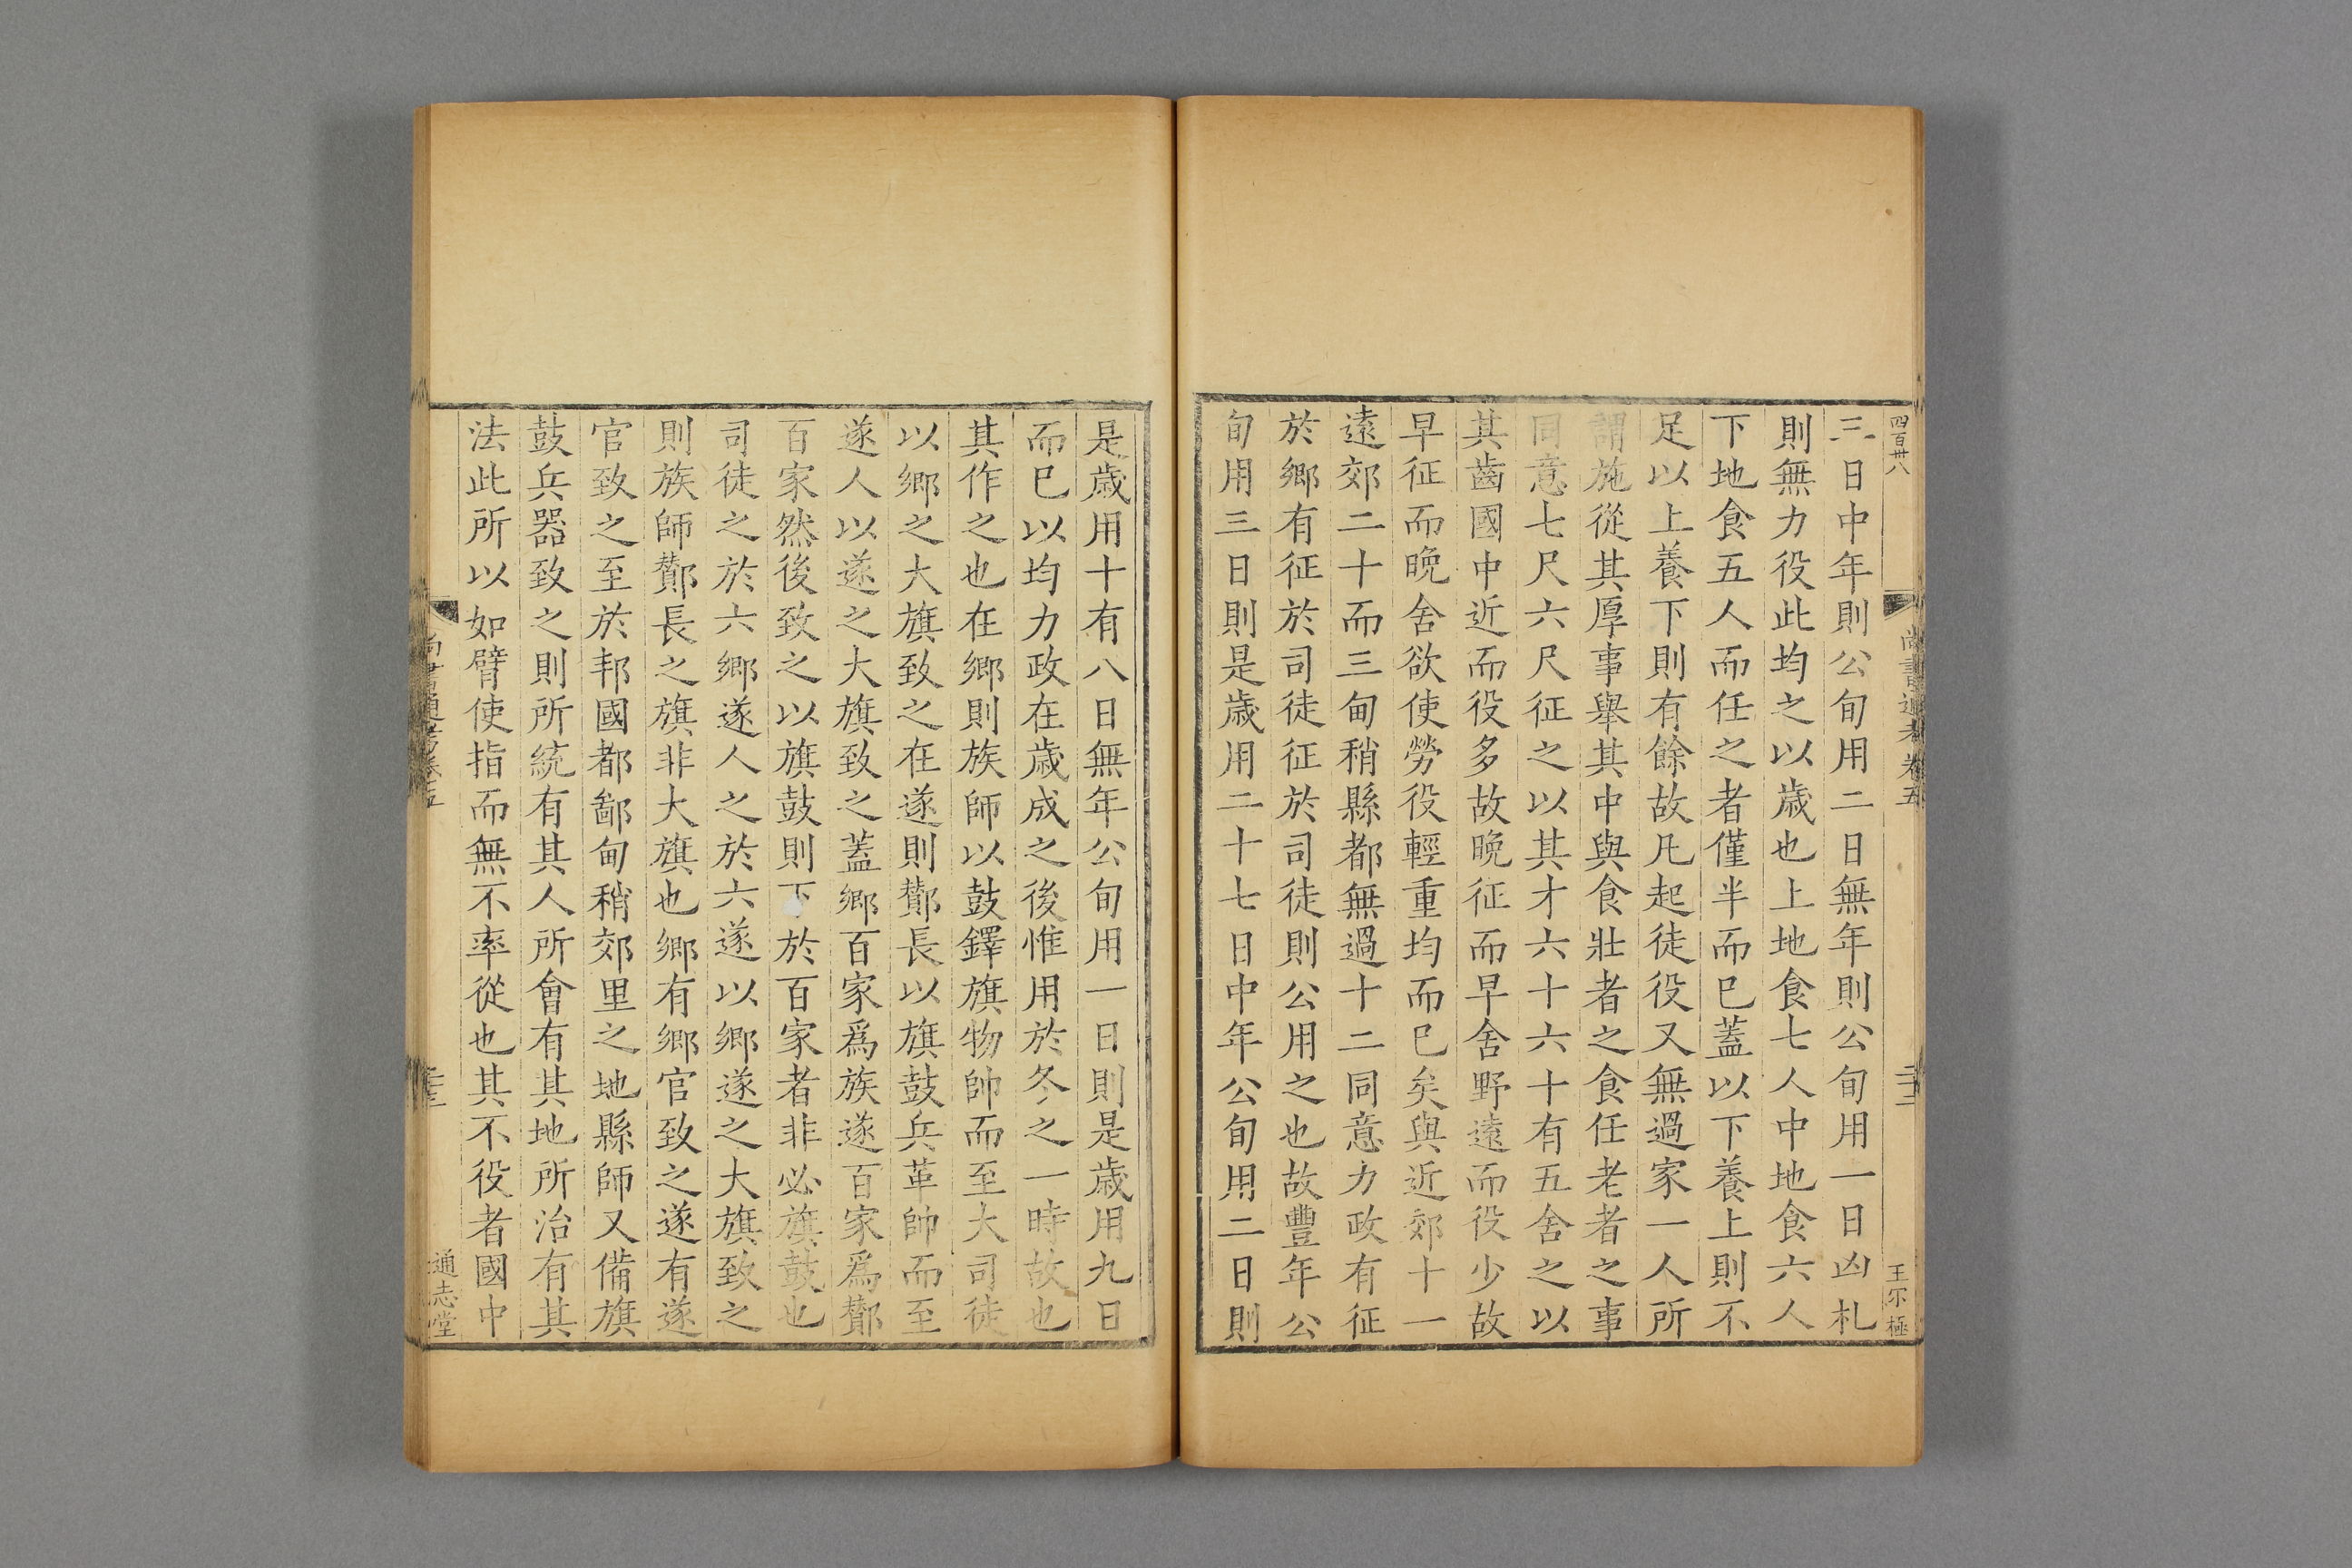 四百卅八
尚書通考卷五
王尔極
三日中年則公旬用二日無年則公旬用一日凶札
則無力役此均之以歲也上地食七人中地食六人
下地食五人而任之者僅半而已蓋以下養上則不
足以上養下則有餘故凡起徒役又無過家一人所
謂施從其厚事舉其中與食壯者之食任老者之事
同意七尺六尺征之以其才六十六十有五舍之以
其齒國中近而役多故晩征而早舍野遠而役少故
早征而晩舍欲使勞役輕重均而已矣與近郊十一
遠郊二十而三甸稍縣都無過十二同意力政有征
於鄉有征於司徒征於司徒則公用之也故豐年公
旬用三日則是歲用二十七日中年公旬用二日則
是歲用十有八日無年公旬用一日則是歲用九日
而已以均力政在歲成之後惟用於冬之一時故也
其作之也在鄉則族師以鼓鐸旗物帥而至大司徒
以鄉之大旗致之在遂則酇長以旗鼓兵革帥而至
遂人以遂之大旗致之蓋鄉百家爲族遂百家爲酇
百家然後致之以旗鼓則下於百家者非必旗鼓也
司徒之於六鄉遂人之於六遂以鄉遂之大旗致之
則族師酇長之旗非大旗也鄉有鄉官致之遂有遂
官致之至於邦國都鄙甸稍郊里之地縣師又備旗
鼓兵器致之則所統有其人所會有其地所治有其
法此所以如臂使指而無不率從也其不役者國中
尚書通考卷五
通志堂